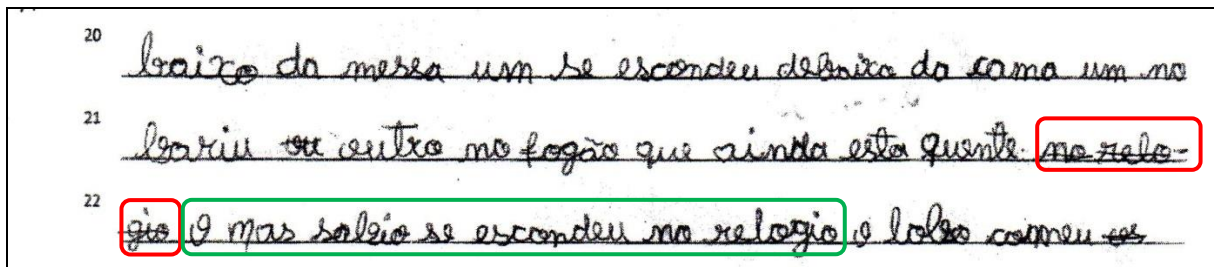 20 baixo da messa um se escondeu debaixo da cama um no
21 bariu ou outro no fogão que ainda esta quente no relo-
22 gio o mas sabio se escondeu no relogio o lobo comeu os